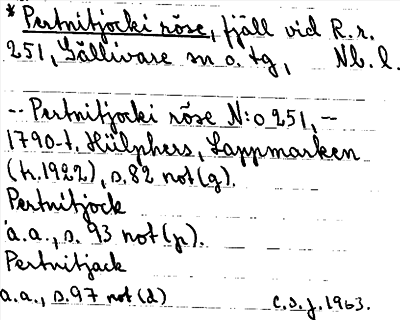 * Pertnitjocki röse, fjäll vid R.r.
251, Gällivare sn o. tg, Nb. l.
-- Pertnitjocki röse N:o 251, --
1790-t. Hülphers, Lappmarken
(tr.1922), s.82 not (g).
Pertnitjock
a.a., s. 93 not (p).
Pertnitjack
a.a., s.97 not (d) C.S.J. 1963.